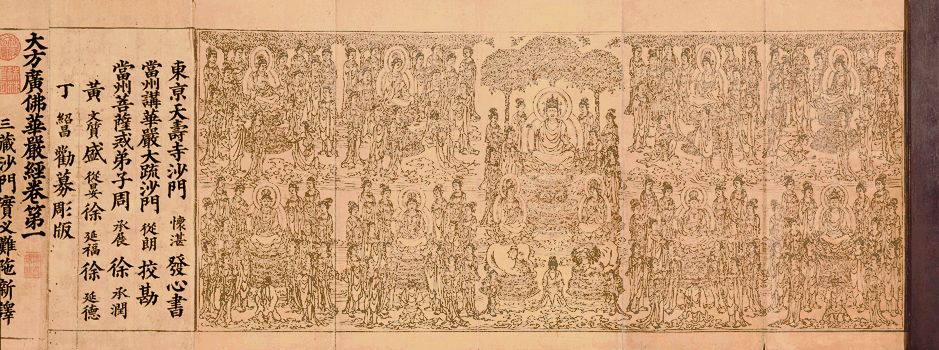 東京天壽寺沙門 懷湛 發心書
當州講華嚴大疏沙門 從朗 挍勘
當州菩薩戒弟子周 承展 徐 承潤
黃 文質 盛 從晏 徐 延福 徐 延德
丁 紹昌 勸募彫版
大方廣佛華嚴經卷第一
三藏沙門實叉難陁新譯